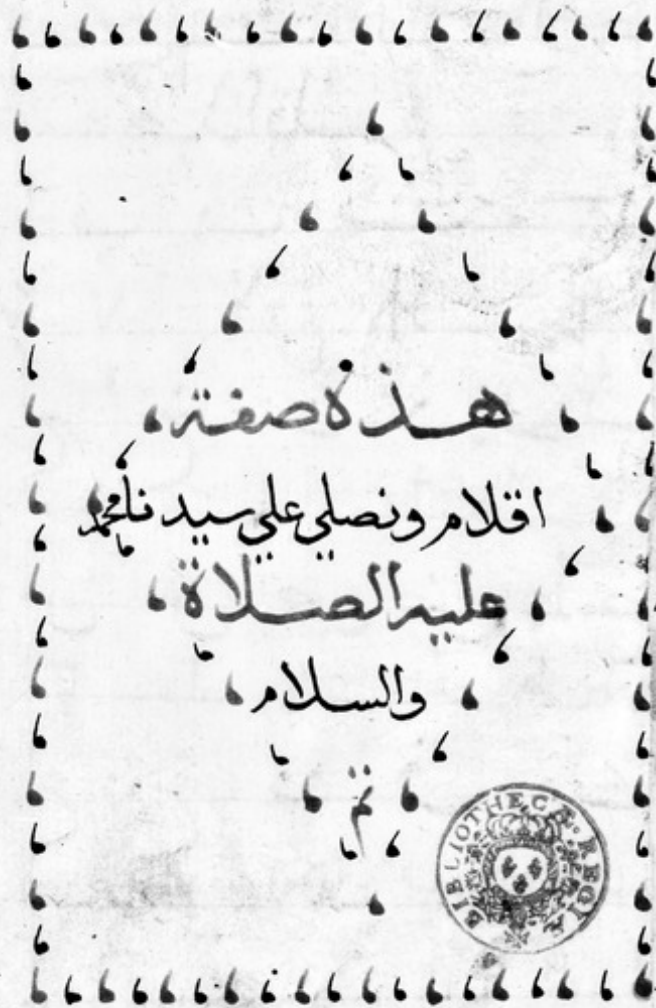 هذه صفة
اقلام ونصلي علي سيدنا محمد
عليه الصلاة
والسلام
تم
BIBLIOTHECÆ REGIÆ